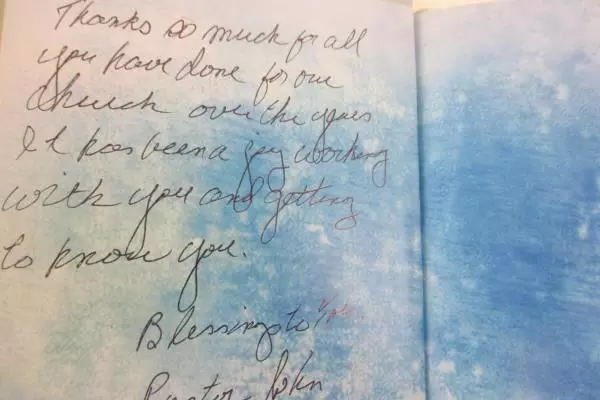 Thanks so much for all
you have done for our
church over the years
It has been a joy working
with you and getting
to know you.
Blessings to you
Pastor John